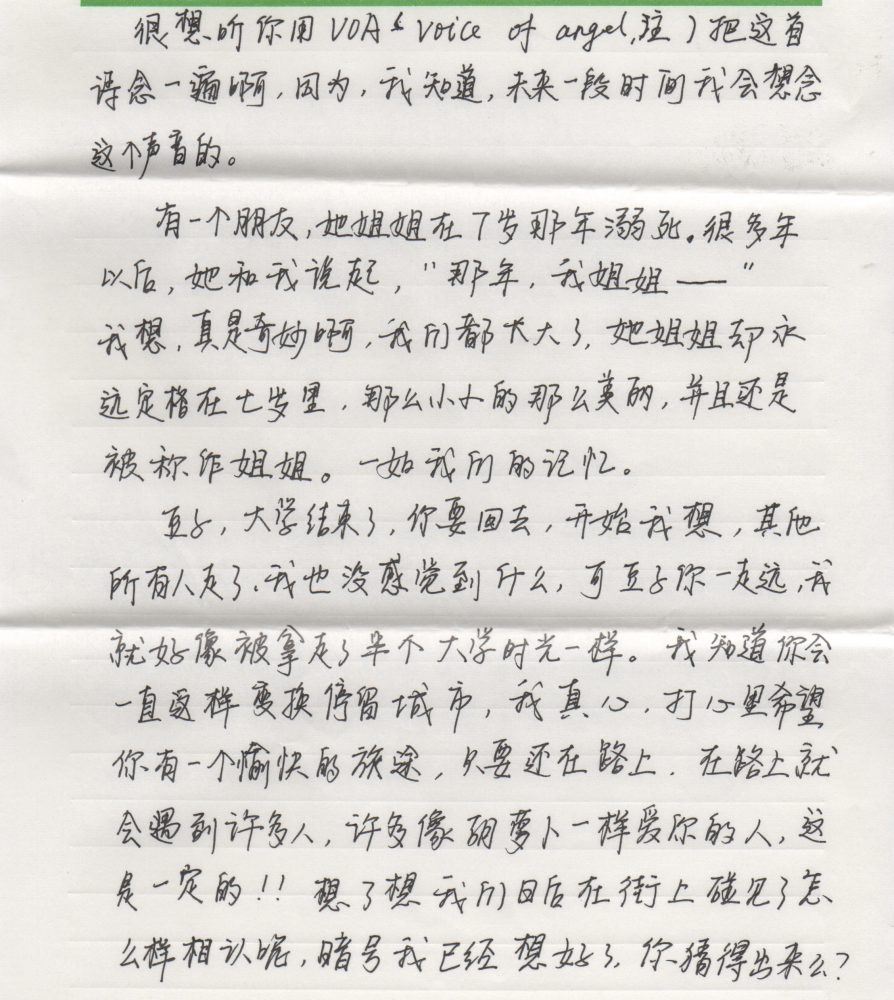 很想听你用VOA(voice of angel,注)把这首
诗念一遍啊,因为,我知道,未来一段时间我会想念
这个声音的。
有一个朋友,她姐姐在7岁那年溺死。很多年
以后,她和我说起,"那年,我姐姐——"
我想,真是奇妙啊,我们都长大了,她姐姐却永
远定格在七岁里,那么小小的那么美丽,并且还是
被称作姐姐。一如我们的记忆。
豆子,大学结束了,你要回去,开始我想,其他
所有人走了,我也没感觉到什么,可豆子你一走远,我
就好像被拿走了半个大学时光一样。我知道你会
一直这样变换停留城市,我真心,打心里希望
你有一个愉快的旅途,只要还在路上,在路上就
会遇到许多人,许多像胡萝卜一样爱你的人,这
是一定的!!想了想我们日后在街上碰见了怎
么样相认呢,暗号我已经想好了,你猜得出来么?